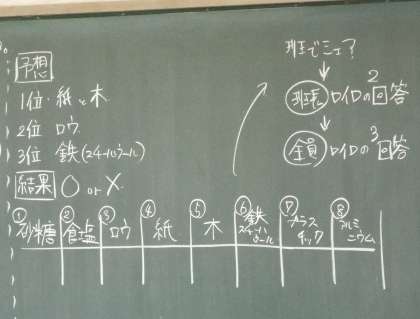 予想
1位・紙と木
2位 ロウ
3位 鉄(スチールウール)
結果 ○ or ×
班でシェア?
↓
班長 ロイロの2回答
↓
全員 ロイロの3回答
① 砂糖 ② 食塩 ③ ロウ ④ 紙 ⑤ 木 ⑥ 鉄 スチールウール ⑦ プラスチック ⑧ アルミニウム